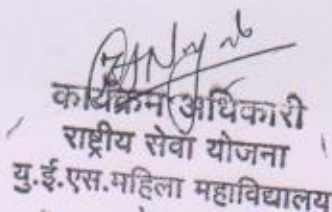 कार्यक्रम अधिकारी
राष्ट्रीय सेवा योजना
यु.ई.एस.महिला महाविद्यालय